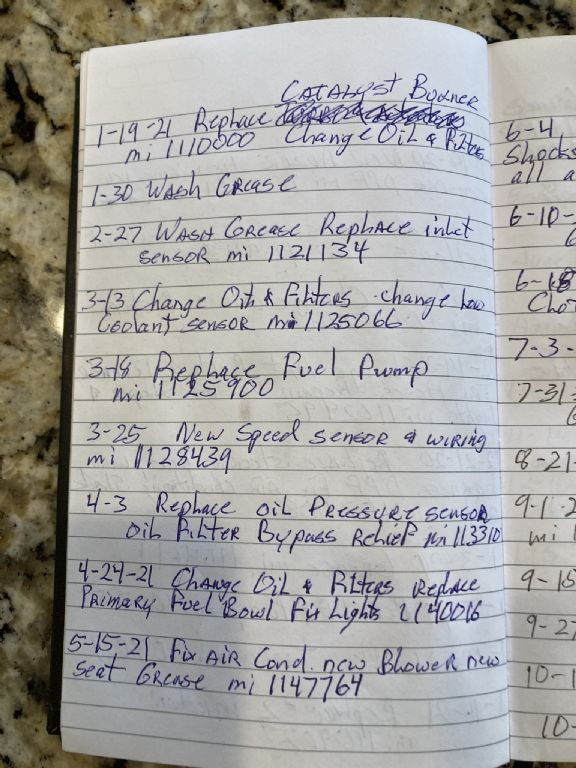 Catalyst Burner
1-19-21 Replace
mi 1110000 Change Oil & Filters
1-30 Wash Grease
2-27 Wash Grease Replace inlet
sensor mi 1121134
3-13 Change Oil & Filters change low
Coolant sensor mi 1125066
3-18 Replace Fuel Pump
mi 1125900
3-25 New Speed sensor & wiring
mi 1128439
4-3 Replace oil Pressure sensor
Oil Filter Bypass Relief mi 113310
4-24-21 Change Oil & Filters Replace
Primary Fuel Bowl Fix Lights 1140016
5-15-21 Fix Air Cond. new Blower new
seat Grease mi 1147764
6-4
Shocks
all a
6-10-
6-18
7-3-
7-31
8-21-
9-1
mi 1
9-15
9-27
10-1
10-